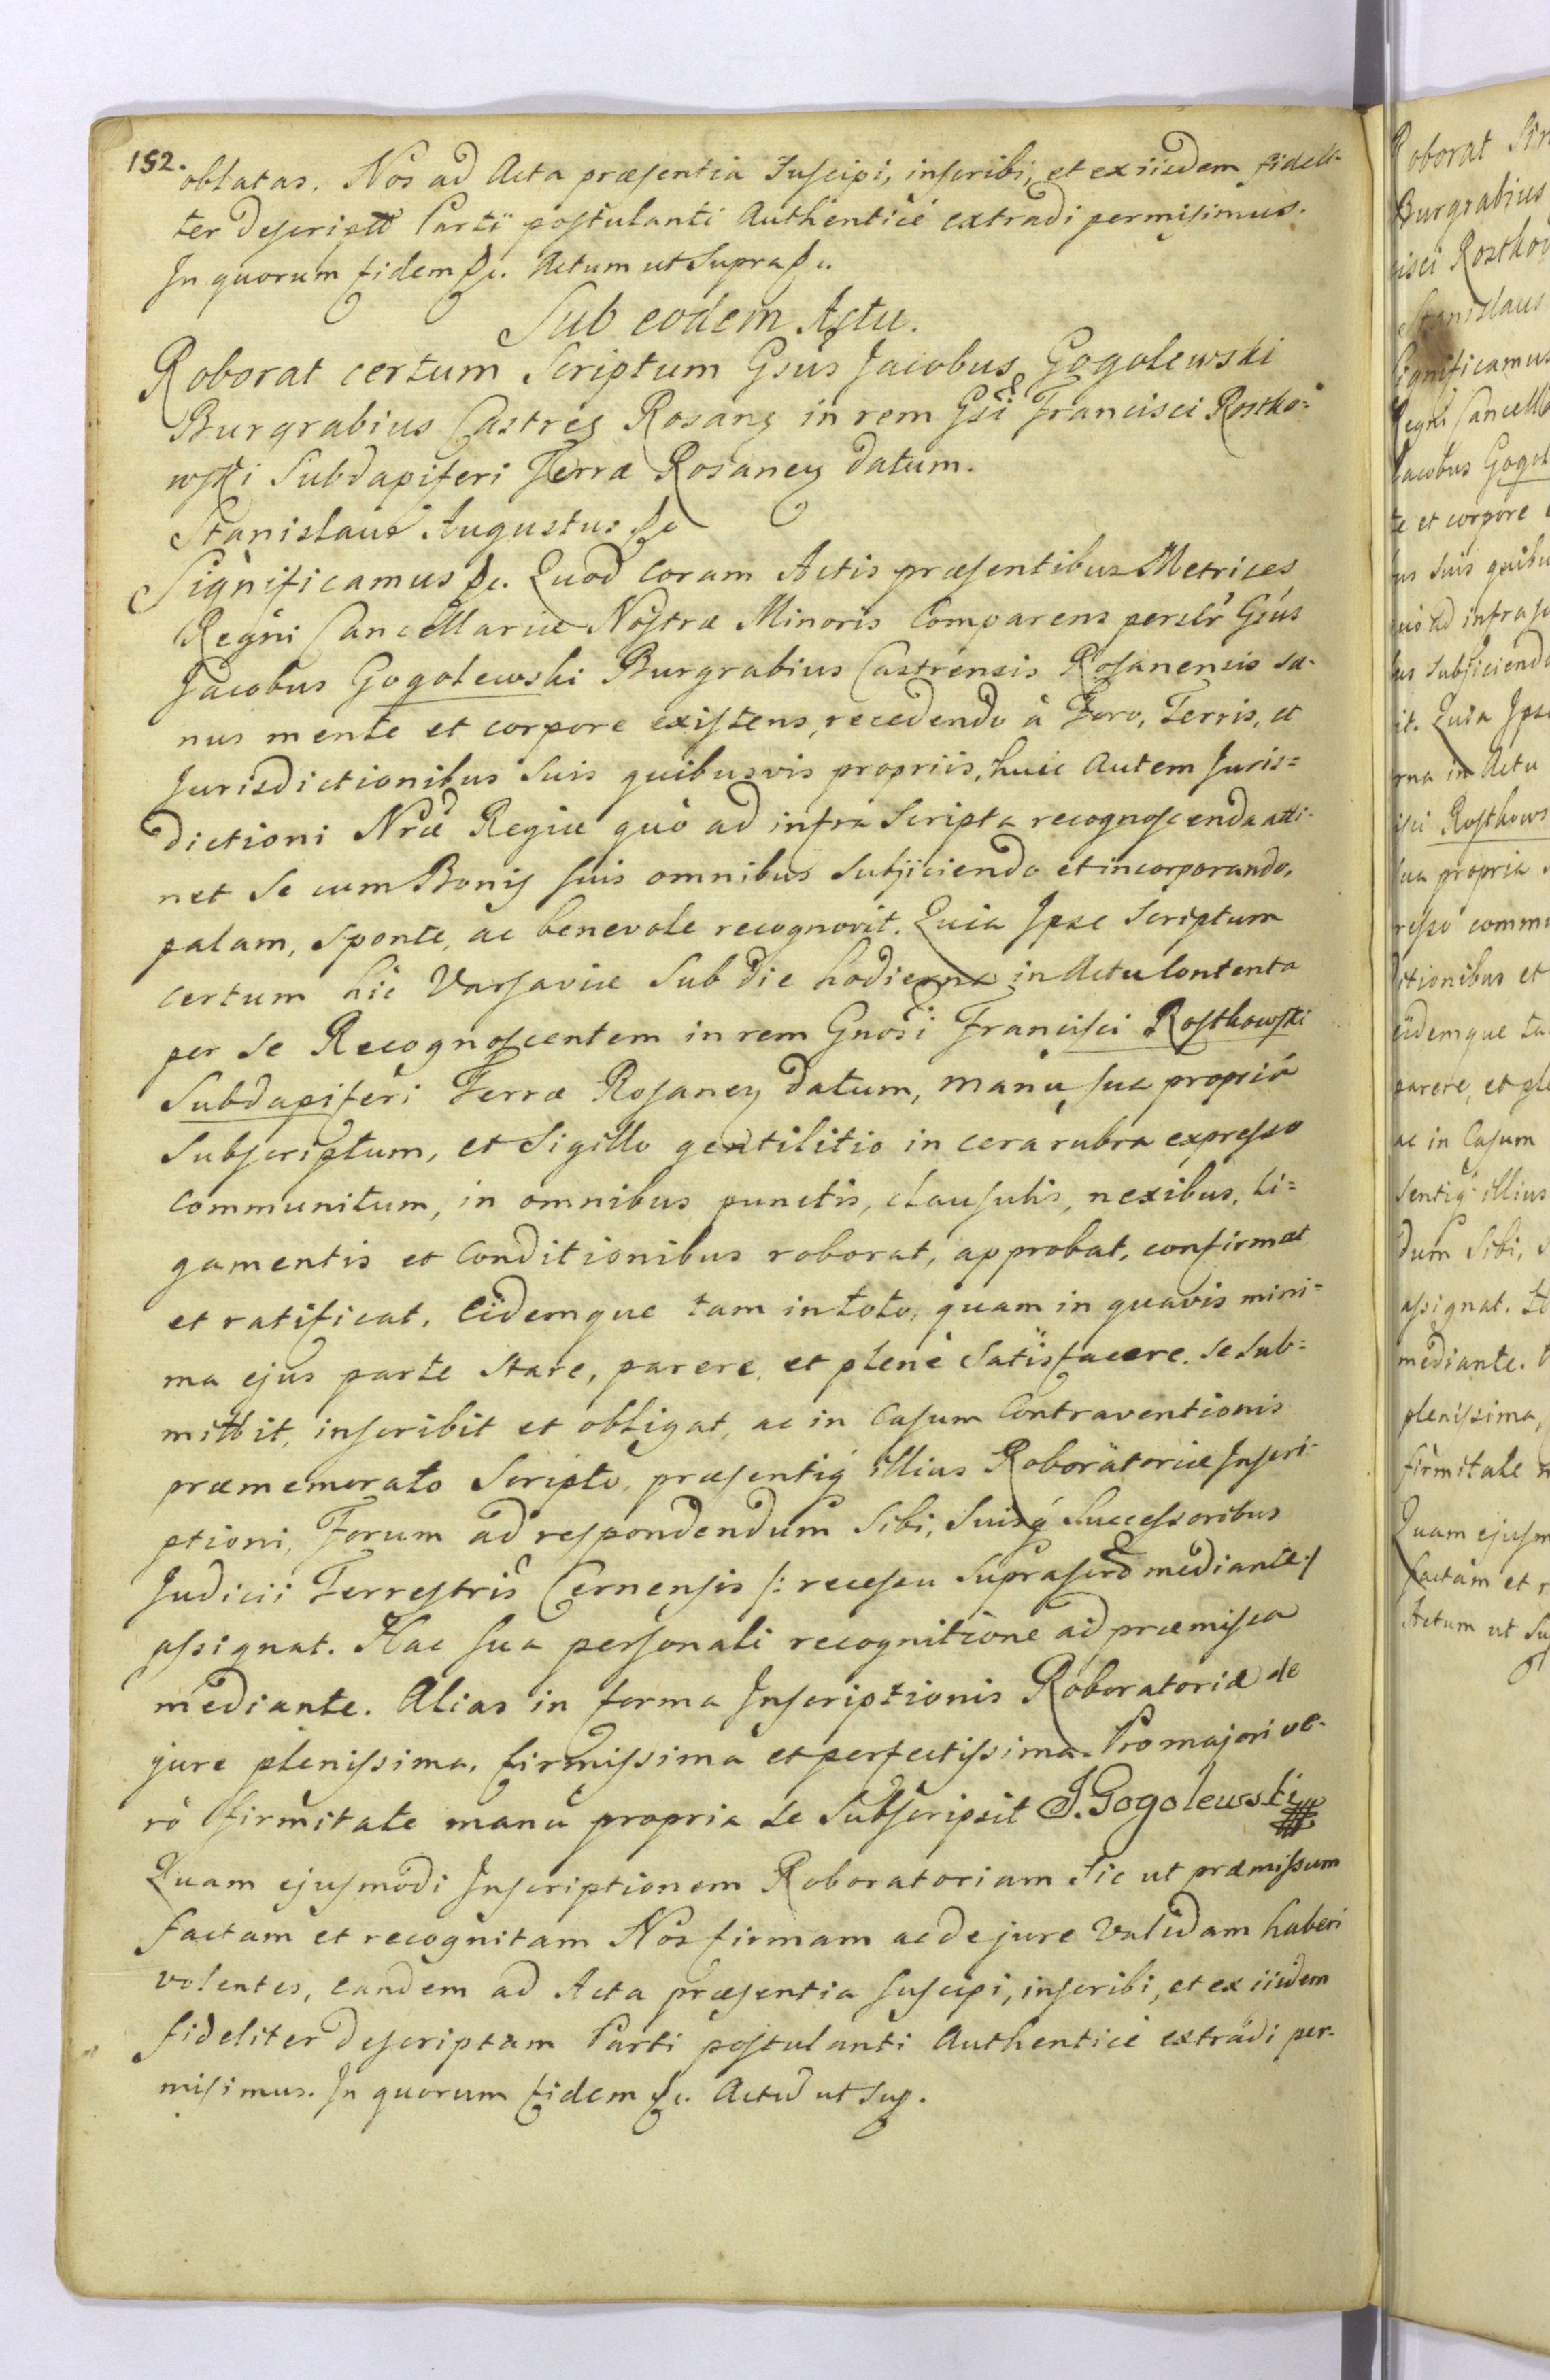 152.
oblatas. Nos ad Acta præsentia Suscipi, inscribi, et ex iisdem fideli-
ter descript Parti postulanti Authenticè extradi permisimus.
In quorum fidem &c. Actum ut Supra &c.
Sub eodem Actu.
Roborat certum Scriptum Gsus Jacobus Gogolewski
Burgrabius Castreñ Rosanẽ in rem Gsi Francisci Rostko-
wski Subdapiferi Terræ Rosaneñ datum.
Stanislaus Augustus &c
Significamus &c. Quod Coram Actis præsentibus Metrices
Regni Cancellariæ Nostræ Minoris Comparens persłr Gsus
Jacobus Gogolewski Burgrabius Castrensis Rosanensis sa-
nus mente et corpore existens, recedendo à Foro, Terris, et
Jurisdictionibus Suis quibusvis propriis, huic Autem Juris=
dictioni Nræ Regiæ quò ad infra Scripta recognoscenda atti-
net Se cum Bonis suis omnibus Subjiciendo et incorporando,
palam, Sponte, ac benevole recognovit. Quia Ipse Scriptum
certum hic Varsaviæ Sub die hodierna in Actu Contenta
per Se Recognoscentem in rem Gnosi Francisci Rostkowski
Subdapiferi Terræ Rosaneñ datum, manu sua propriâ
Subscriptum, et Sigillo gentilitio in cera rubra expresso
Communitum, in omnibus punctis, clausulis, nexibus, li=
gamentis et Conditionibus roborat, approbat, confirmat
et ratificat, Eidemque tam in toto, quam in quavis mini=
ma ejus parte Stare, parere, et plenè Satisfacere. Se Sub=
mittit, inscribit et obligat, ac in Casum Contraventionis
præmemorato Scripto, præsentiq́ illius Roboratoriæ Inscri-
ptioni, Forum ad respondendum Sibi, Suisq́ Successoribus
Judicii Terrestris Cernensis /: recessu Suprascrō mediante :/
assignat. Hac Sua personali recognitione ad præmissa
mediante. Alias in forma Inscriptionis Roboratoriæ de
jure plenissima, firmissima et perfectissima. Pro majori ve-
rò firmitate manu propria Se Subscripsit J. Gogolewski
Quam ejusmodi Inscriptionem Roboratoriam Sic ut præmissum
factam et recognitam Nos firmam ac de jure Validam haberi
volentes, eandem ad Acta præsentia Suscipi, inscribi, et ex iisdem
fideliter descriptam Parti postulanti Authenticè extradi per-
misimus. In quorum fidem &c. Actū ut Sup.
Roborat
Burgrabius
Stanislaus
Significamus
Regni Cancella
Jacobus Gogol
te et corpore
us Suis quibu
quò ad infra sc
us Subjiciendo
it. Quia Ipse
rna in Actu
isci Rostkows
Sua propria
resso commu
itionibus et
eidemque ta
parere, et ple
ac in Casum
sentiq́ illius
dum Sibi, S
assignat.
mediante.
plenissima,
firmitate m
Quam ejusm
factam et r
Actum ut Su